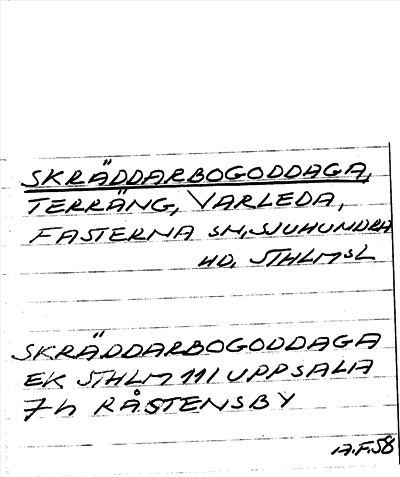 SKRÄDDARBOGODDAGA,
TERRÄNG, VARLEDA,
FASTERNA SN, SJUHUNDRA
HD, STHLMSL
SKRÄDDARBOGODDAGA
EK STHLM 111 UPPSALIA
7h RÅSTENSBY
17.F.58